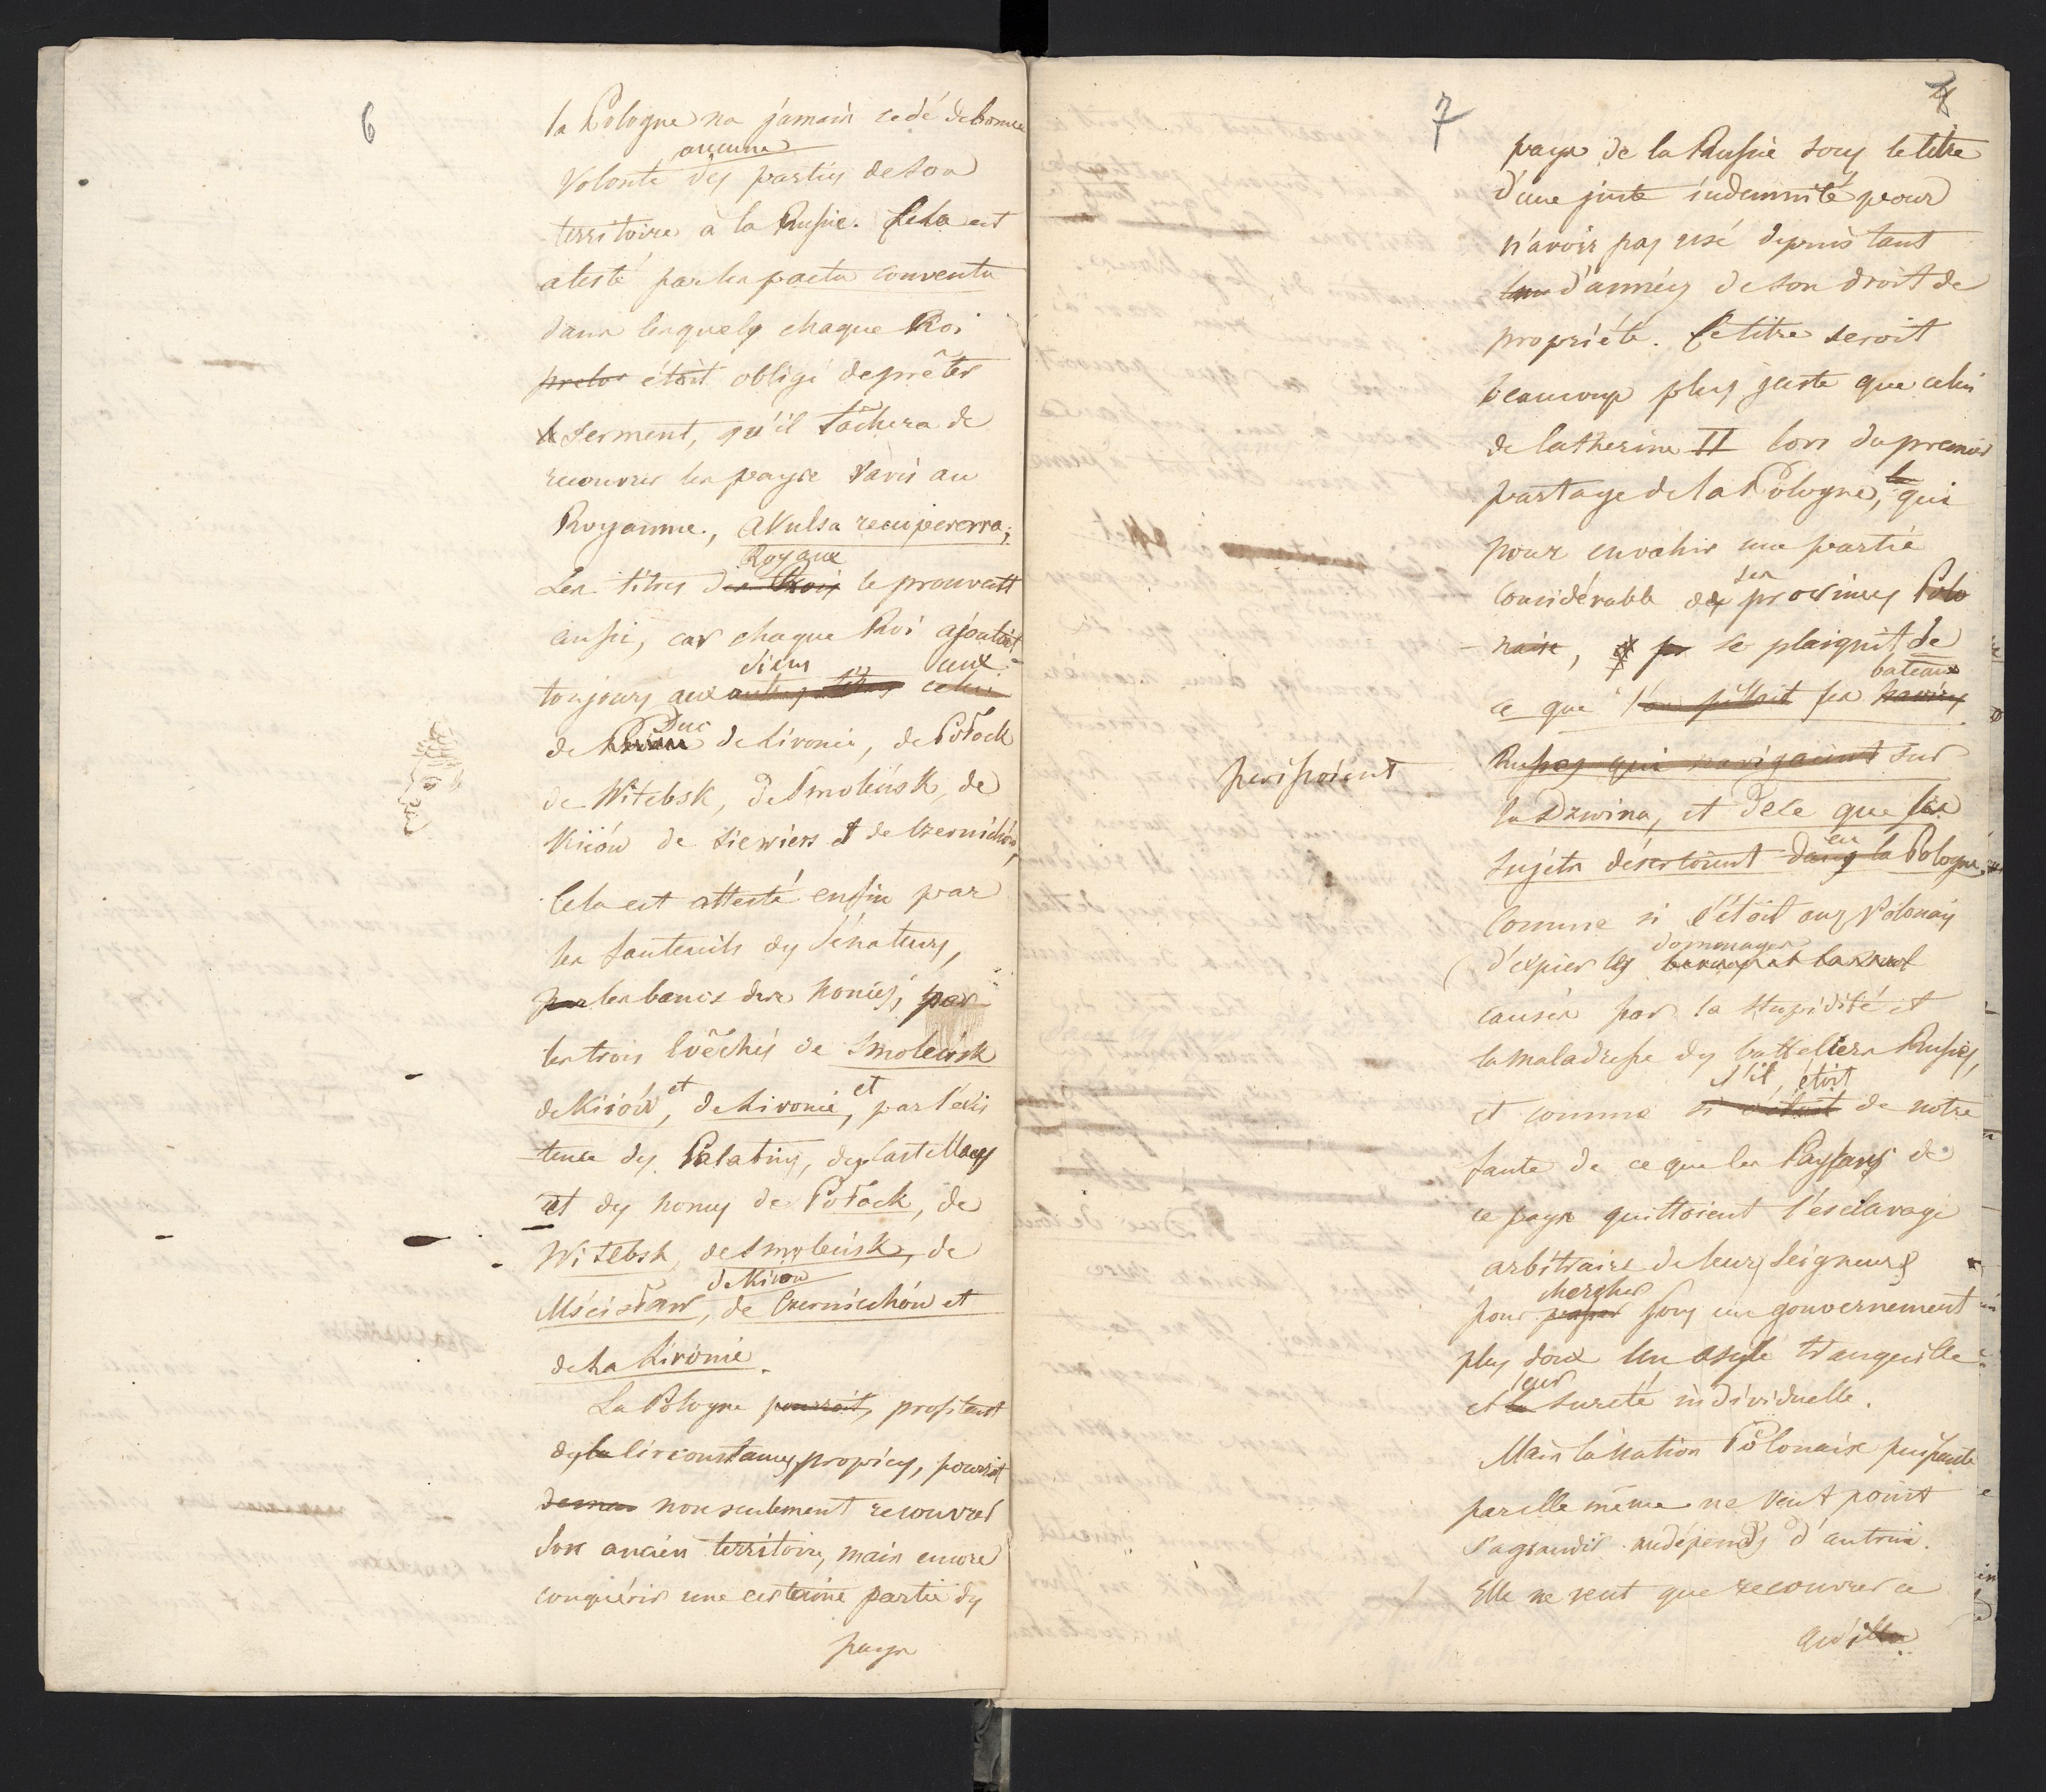 6
la Pologne na jamais cedé de bonne
aucune
Volonté des parties de son
territoire à la Russie. Cela est
atesté par les pacta conventa
dans lesquels chaque Roi
étoit obligé de prêter
le serment, qu'il tâchera de
recouvrer les pays ravis au
Royaume., avulsa recuperera;
Royaux
Les titres des Rois le prouvent
aussi, car chaque Roi ajoutoit
siens ceux
toujours aux autres titres celui
Duc
de de Livonie, de Połock
de Witebsk, de Smoleńsk, de
Kiiów de Siewiers et de Czernichów,
Cela est attesté enfin par
les fauteuils des Sénateurs,
par les bancs des nonces, par
les trois Evêchés de Smoleńsk
et et
de Kiiów, de Livonie, par l'exis
tence des Palatins, des Castellans
et des nonces de Połock, de
Witebsk, de Smoleńsk, de
de Kiiow
Mścisław, de Czernichów et
de la Livonie.
La Pologne pourroit, profitant
des la circonstances propices, pourroit
non seulement recouvrer
son ancien territoire, mais encore
conquérir une certaine partie des
pays
7
8
pays de la Russie sous le titre
d'une juste indemnité pour
n'avoir pas usé depuis tant
d'années de son droit de
propriété. Ce titre seroit
beaucoup plus juste que celui
de Catherine II lors du premier
partage de la Pologne, qui
pour envahir une partie
les
considérable des provinces Polo
naise, se plaignit de
bateaux
ce que l'on pilloit ses navires
perissoient
Russes qui navigaient sur
la Dzwina, et de ce que ses
en
sujets désertoient dans la Pologne,
Comme si c'étoit aux Polonais
dommages
d'expier les
causés par la stupidité et
la maladresse des batteliers Russes,
s'il, étoit
et comme si c'étoit de notre
faute de ce que les Paysans de
ce pays quittoient l'ésclavage
arbitraire de leurs Seigneurs
chercher
pour sous un gouvernement
plus doux Un asyle tranquille
leur
et la sureté individuelle.
Mais la Nation Polonaise puissante
par elle même ne veut point
s'agrandir audépends d'autrui.
Elle ne veut que recouvrer ce
qu'elle